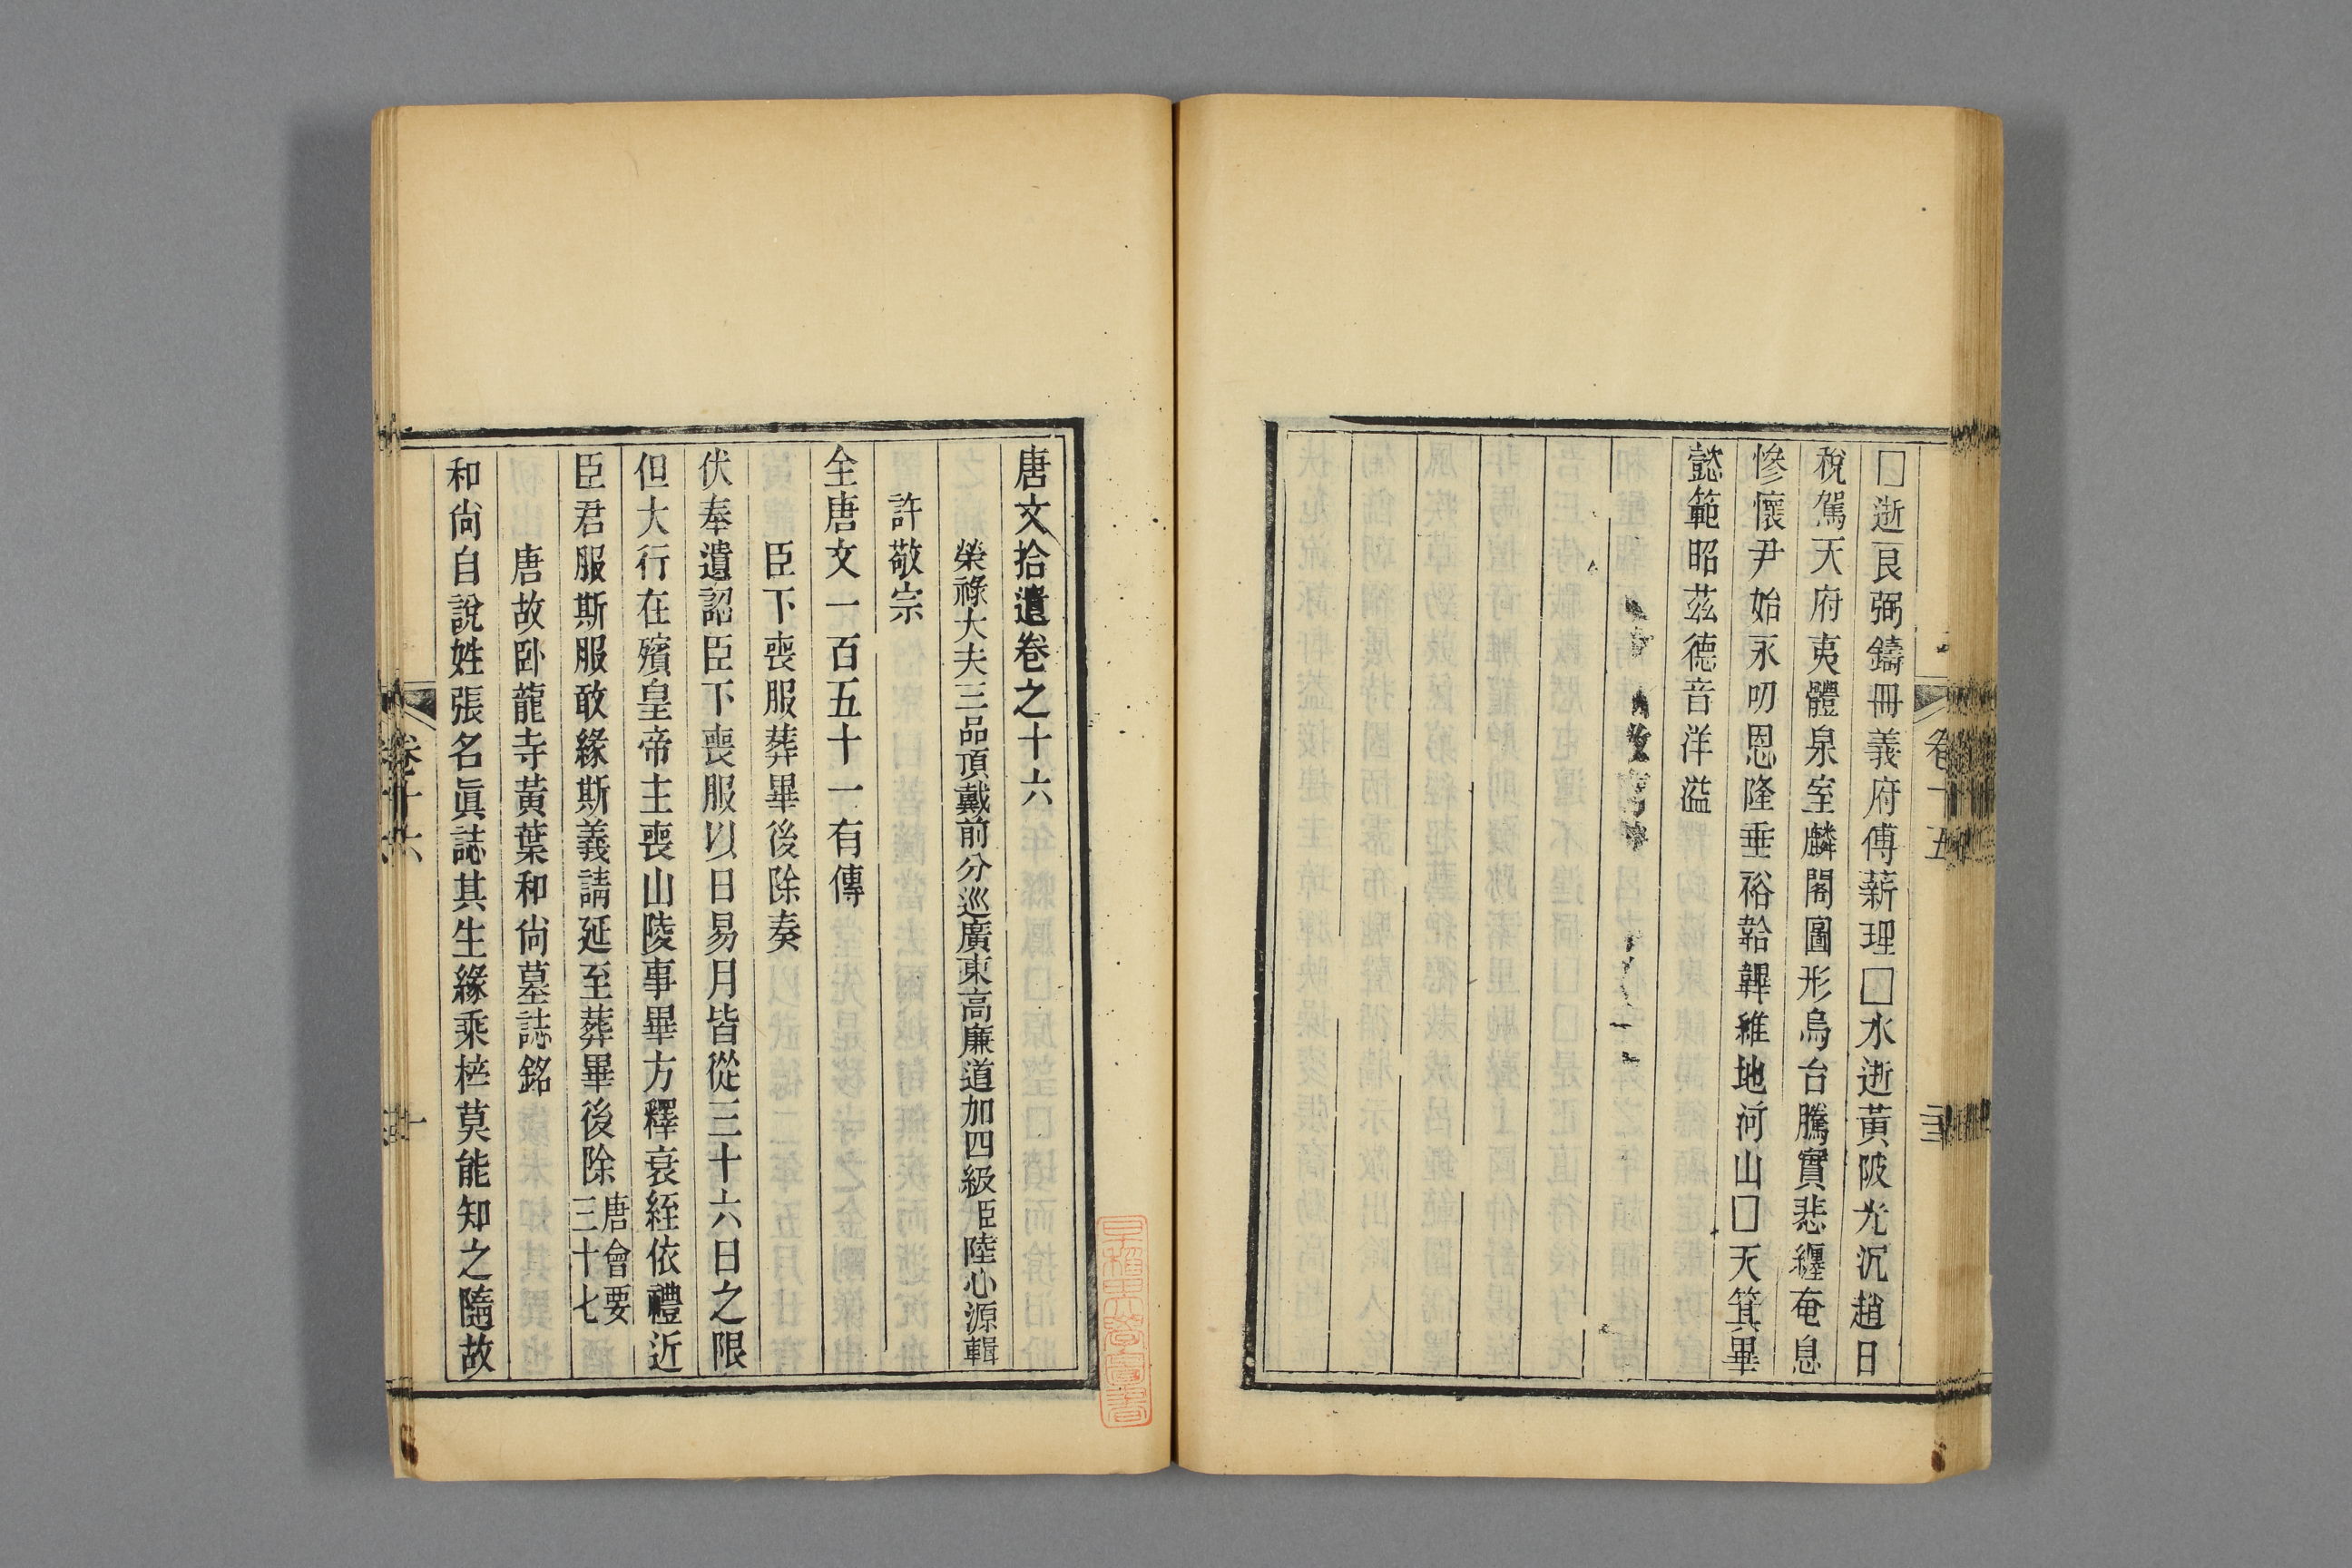 □逝良弼鑄冊義府傅薪理□水逝黃陂光沉趙日
稅駕天府夷體泉室麟閣圖形烏台騰實悲纏奄息
慘懷尹始永叨恩隆垂裕韐韠維地河山□天箕畢
懿範昭茲德音洋溢
卷十五
唐文拾遺卷之十六
榮祿大夫三品頂戴前分巡廣東高廉道加四級臣陸心源輯
許敬宗
全唐文一百五十一有傳
臣下喪服葬畢後除奏
伏奉遺詔臣下喪服以日易月皆從三十六日之限
但大行在殯皇帝主喪山陵事畢方釋衰絰依禮近
臣君服斯服敢緣斯義請延至葬畢後除唐會要
三十七
唐故卧龍寺黃葉和尙墓誌銘
和尙自說姓張名眞誌其生緣乘桻莫能知之隨故
卷十六
一